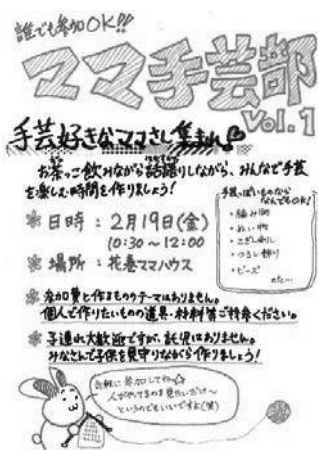 誰でも参加OK!!
ママ手芸部
Vol.1
手芸好きなママさん集まれ
お茶っこ飲みながら話語りしながら、みんなで手芸
を楽しむ時間を作りましょう!
手芸っぽいものなら
なんでもOK!
・編み物
・ぬい物
・こぎん刺し
・つるし飾り
・ビーズ
etc...
日時：2月19日(金)
10:30～12:00
場所：花巻ママハウス
参加費と作るもののテーマはありません。
個人で作りたいものの道具・材料等ご持参ください。
子連れ大歓迎ですが、託児はありません。
みなさんで子供を見守りながら作りましょう!
気軽に参加してね
人がやってるのを見たいだけ～
というのでもいいですよ(笑)